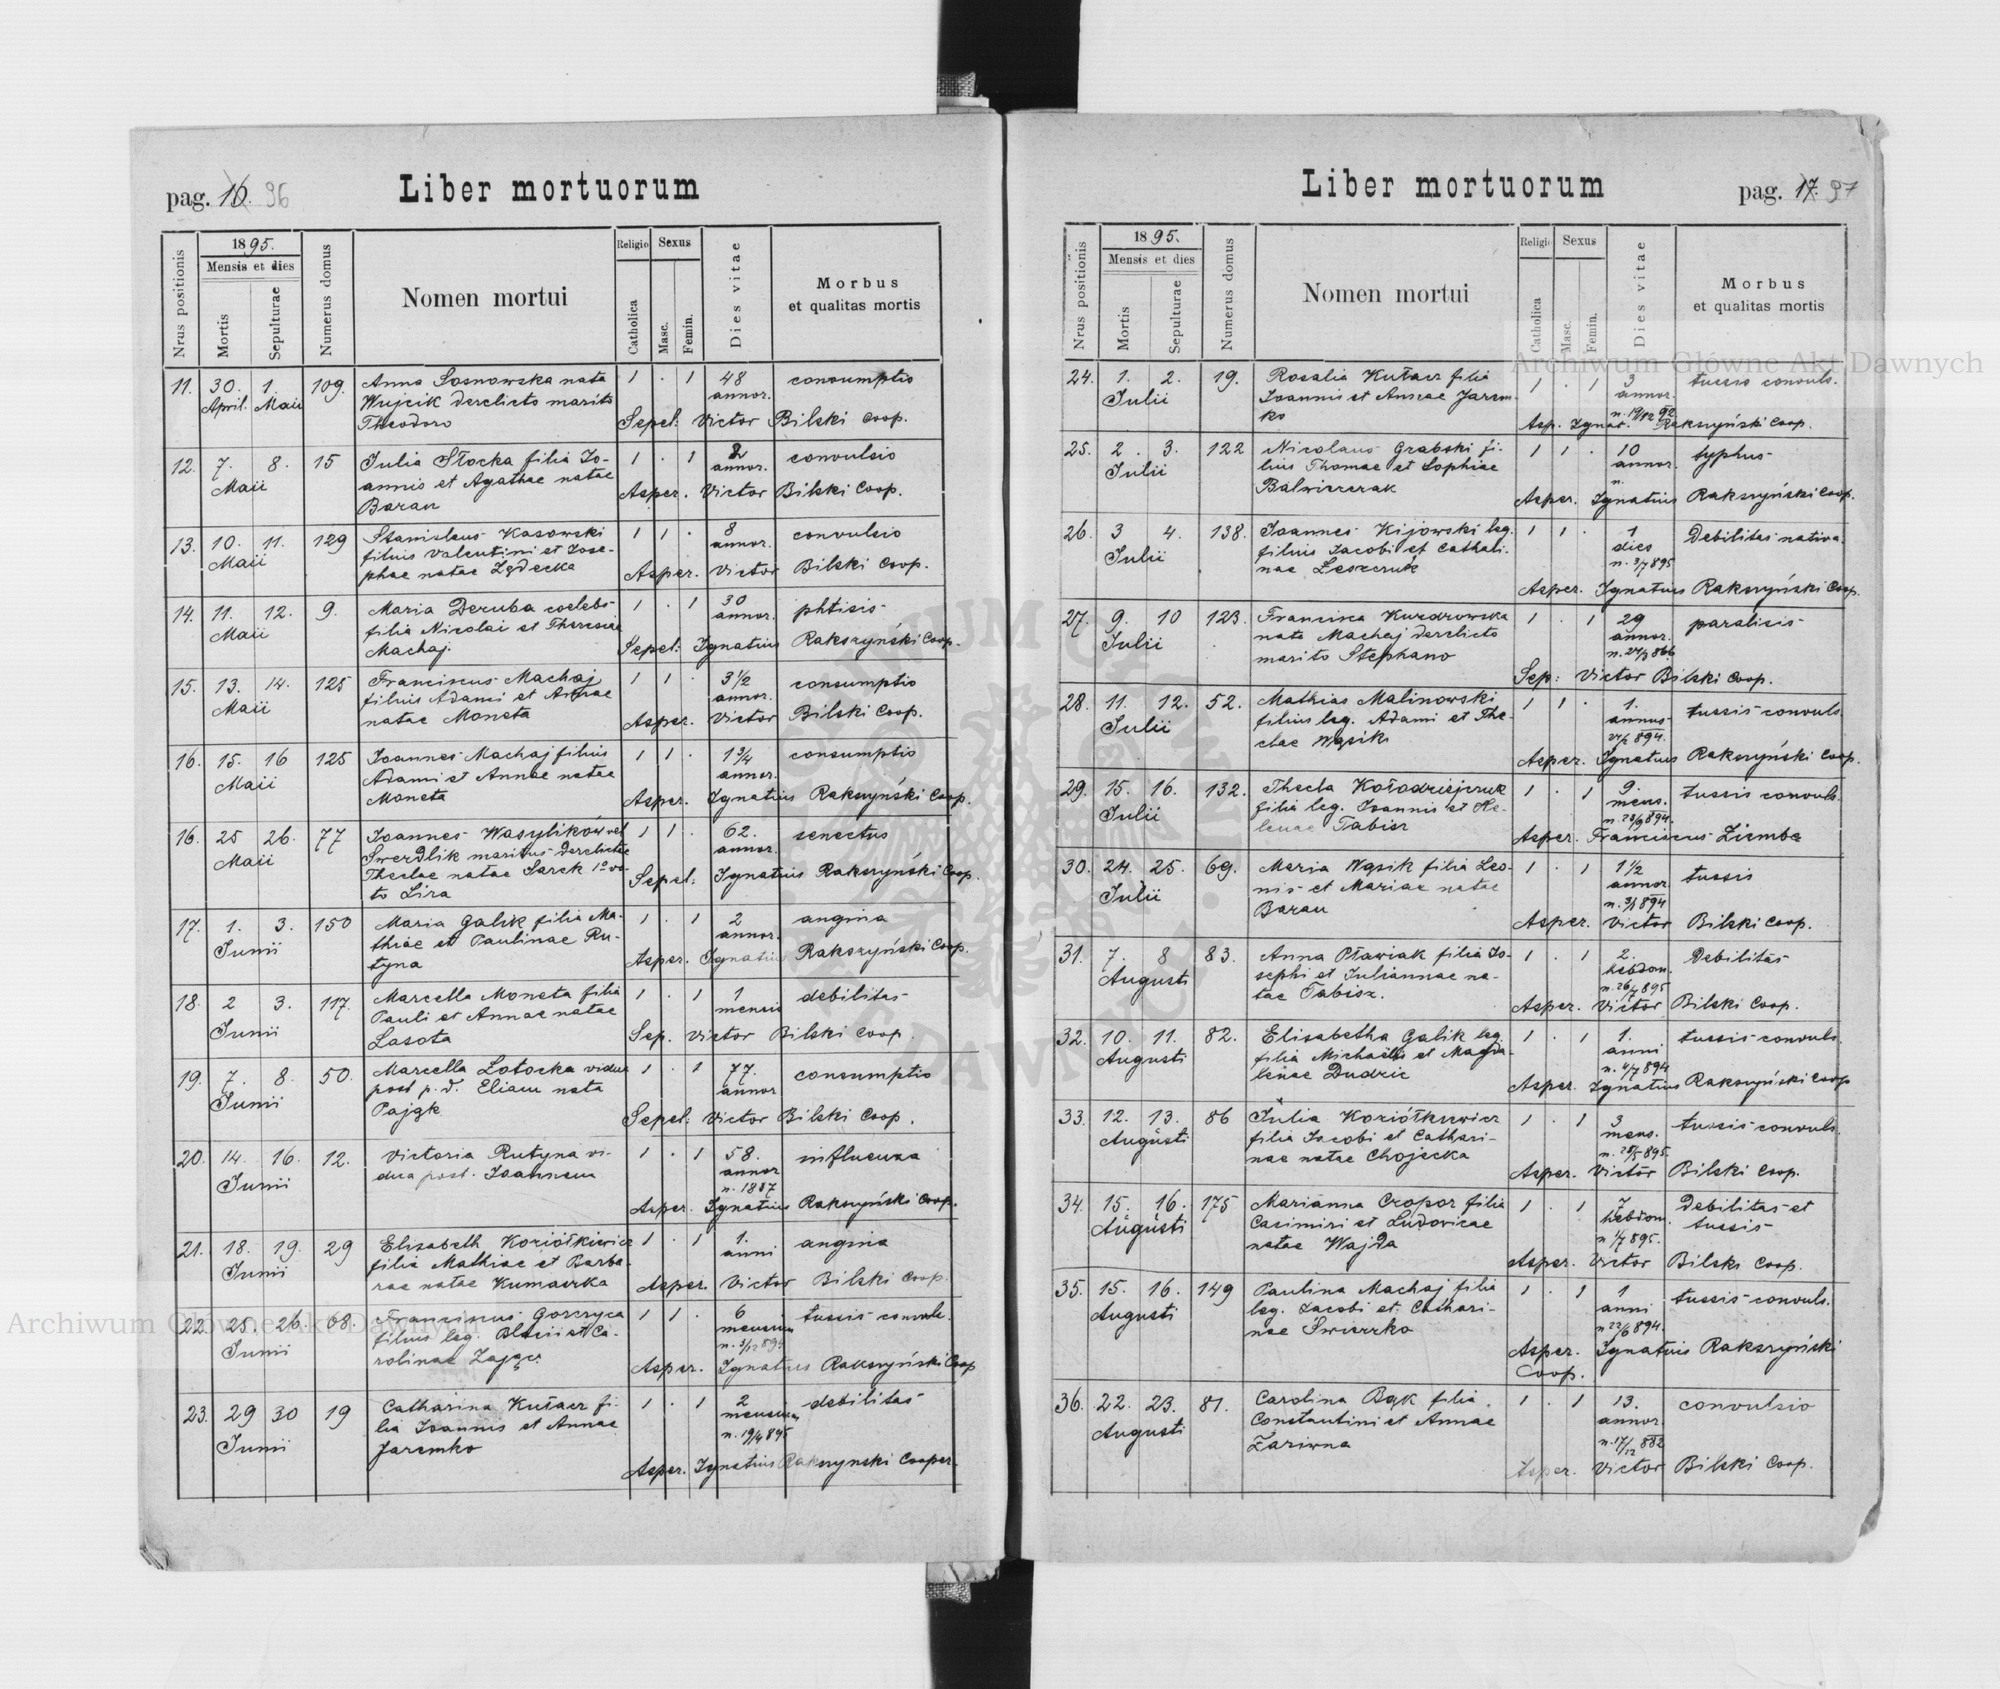 pag. 16. 96
Liber mortuorum
Nrus positionis
1895.
Mensis et dies
Mortis
Sepulturae
Numerus domus
Nomen mortui
Religio
Catholica
Sexus
Masc.
Femin.
Dies vitae
Morbus
et qualitas mortis
11. 30. 1. 109. Anna Sosnowska nata 1 . 1 48 consumptio
April. Maii Wujcik derelicto marito annor.
Theodoro Sepel: Victor Bilski Coop.
12. 7. 8. 15 Julia Słocka filia Jo- 1 . 1 2 convulsio
Maii annis et Agathae natae annor.
Baran Asper. Victor Bilski Coop.
13. 10. 11. 129 Stanislaus Kasowski 1 1 . 8 convulsio
Maii filius Valentini et Jose- annor.
phae natae Zędecka Asper. Victor Bilski Coop.
14. 11. 12. 9. Maria Deruba coelebs 1 . 1 30 phtisis
Maii filia Nicolai et Theresiae annor.
Machaj. Sepel: Ignatius Rakszyński Coop.
15. 13. 14. 125 Franciscus Machaj 1 1 . 3 1/2 consumptio
Maii filius Adami et Annae annor.
natae Moneta Asper. Victor Bilski Coop.
16. 15. 16 125 Joannes Machaj filius 1 1 . 1 3/4 consumptio
Maii Adami et Annae natae annor.
Moneta Asper. Ignatius Rakszyński Coop.
16. 25 26. 77 Joannes Wasylików vel 1 1 . 62. senectus
Maii Swerdlik maritus derelictae annor.
Theclae natae Sarek 1o vo-
to Lira Sepel: Ignatius Rakszyński Coop.
17. 1. 3. 150 Maria Galik filia Ma- 1 . 1 2 angina
Junii thiae et Paulinae Ru- annor.
tyna Asper. Ignatius Rakszyński Coop.
18. 2 3. 117. Marcella Moneta filia 1 . 1 1 debilitas
Junii Pauli et Annae natae mensis
Lasota Sep. Victor Bilski Coop.
19. 7. 8. 50. Marcella Lotocka vidua 1 . 1 77. consumptio
Junii post p. d. Eliam nata annor
Pająk Sepel: Victor Bilski Coop.
20. 14. 16. 12. Victoria Rutyna vi- 1 . 1 58. influenza
Junii dua post. Joannem annor
n. 1837
Asper. Ignatius Rakszyński Coop.
21. 18. 19. 29 Elisabeth Koziółkiewicz 1 . 1 1. angina
Junii filia Mathiae et Barba- anni
rae natae Kumaszka Asper. Victor Bilski Coop.
22. 25. 26. 68. Franciscus Gorczyca 1 1 . 6 tussis convuls.
Junii filius leg. Blasii et Ca- mensium
rolinae Zając. n. 3/12 894
Asper. Ignatius Rakszyński Coop
23. 29 30 19 Catharina Kułacz fi- 1 . 1 2 debilitas
Junii lia Joannis et Annae mensium
Jaremko n. 19/4 895
Asper. Ignatius Rakszynski Cooper.
Liber mortuorum
pag. 17. 97
Nrus positionis
1895.
Mensis et dies
Mortis
Sepulturae
Numerus domus
Nomen mortui
Religio
Catholica
Sexus
Masc.
Femin.
Dies vitae
Morbus
et qualitas mortis
24. 1. 2. 19. Rosalia Kułacz filia 1 . 1 3 tussis convuls.
Julii Joannis et Annae Jarem- annor.
ko n. 19/12 92
Asp. Ignat. Rakszyński Coop.
25. 2. 3. 122 Nicolaus Grabski fi- 1 1 . 10 typhus
Julii lius Thomae et Sophiae annor.
Balwierczak n.
Asper. Ignatius Rakszyński Coop.
26. 3 4. 138. Joannes Kijowski leg. 1 1 . 1 Debilitas nativa
Julii filius Jacobi et Cathari- dies
nae Leszczuk n. 3/7 895
Asper. Ignatius Rakszyński Coop.
27. 9. 10 123. Francisca Kuzdrowska 1 . 1 29 paralisis
Julii nata Machaj derelicto annor.
marito Stephano n. 24/3 866
Sep: Victor Bilski Coop.
28. 11. 12. 52. Mathias Malinowski 1 1 . 1. tussis convuls
Julii filius leg. Adami et The- annus
clae Wąsik 24/2 894.
Asper. Ignatius Rakszyński Coop.
29. 15. 16. 132. Thecla Kołodziejczuk 1 . 1 9. tussis convuls.
Julii filia leg. Joannis et He- mens.
lenae Tabisz n. 28/9 894.
Asper. Franciscus Ziemba
30. 24. 25. 69. Maria Wąsik filia Leo- 1 . 1 1 1/2 tussis
Julii nis et Mariae natae annor
Baran n. 3/1 894
Asper. Victor Bilski Coop.
31. 7. 8 83. Anna Pławiak filia Jo- 1 . 1 2. Debilitas
Augusti sephi et Juliannae na- hebdom.
tae Tabisz. n. 26/7 895
Asper. Victor Bilski Coop.
32. 10. 11. 82. Elisabetha Galik leg. 1 . 1 1. tussis convuls
Augusti filia Michaelis et Magda- anni
lenae Dudzic n. 4/7 894
Asper. Ignatius Rakszyński Coop
33. 12. 13. 86 Julia Koziółkiewicz 1 . 1 3 tussis convuls.
Augusti filia Jacobi et Cathari- mens.
nae natae Chojecka n. 28/5 895
Asper. Victor Bilski Coop.
34. 15. 16. 175 Marianna Cropor filia 1 . 1 7 Debilitas et
Augusti Casimiri et Ludovicae hebdom. tussis
natae Wajda n 1/7 895.
Asper. Victor Bilski Coop.
35. 15. 16. 149 Paulina Machaj filia 1 . 1 1 tussis convuls.
Augusti leg. Jacobi et Cathari- anni
nae Świerzko n 22/6 894.
Asper. Ignatius Rakszyński
Coop.
36. 22. 23. 81. Carolina Bąk filia 1 . 1 13. convulsio
Augusti Constantini et Annae annor.
Żariwna n. 17/12 882
Asper. Victor Bilski Coop.
Archiwum Główne Akt Dawnych
Archiwum Główne Akt Dawnych